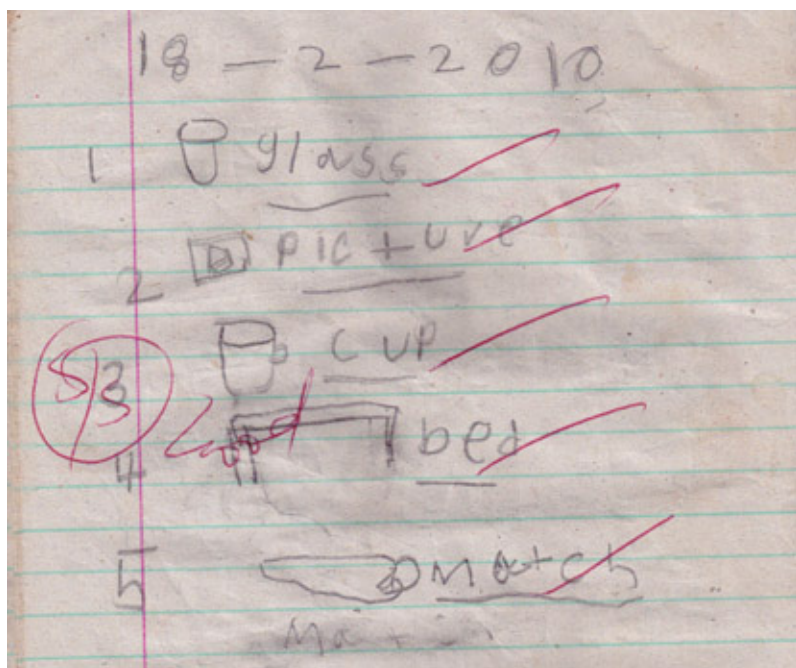 18 - 2 - 2010
1 glass
2 picture
3 cup
Good
4 bed
5 match